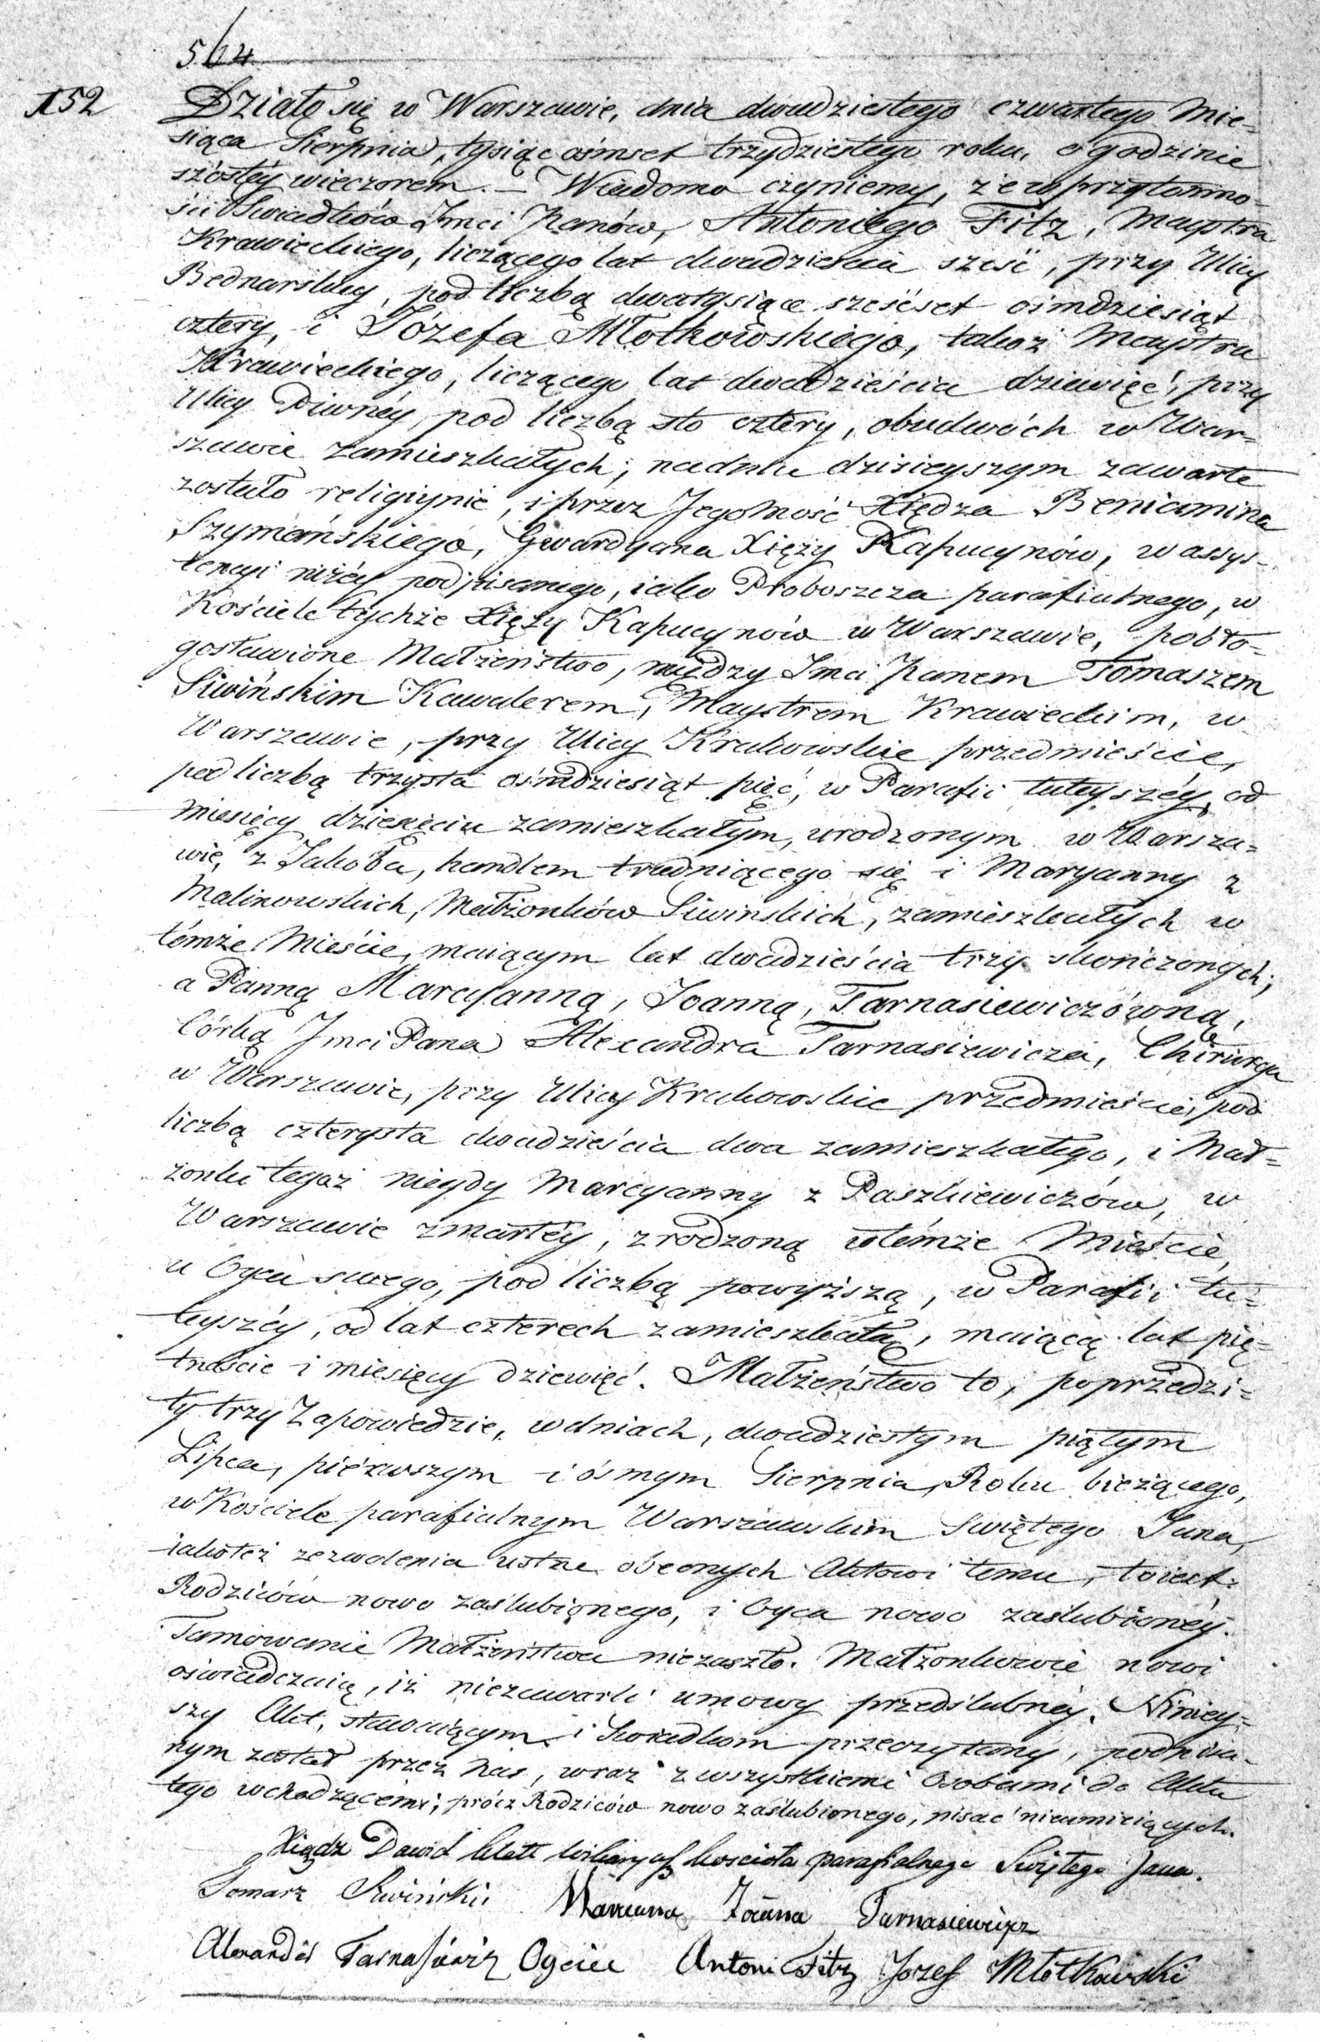 564
152 Działo się w Warszawie, dnia dwudziestego czwartego Mie-
siąca Sierpnia, tysiąc ośmset trzydziestego roku, o godzinie
szóstéy wieczorem. — Wiadomo czyniemy, że w przytomno-
ści Świadków Imci Panów, Antoniego Fitz, Maystra
Krawieckiego, liczącego lat dwadzieścia sześć, przy Ulicy
Bednarskiey, pod liczbą dwatysiące sześćset ośmdziesiąt
cztery, i Józefa Młotkowskiego, takoż Maystra
Krawieckiego, liczącego lat dwadzieścia dziewięć, przy
Ulicy Piwnéy, pod liczbą sto cztery, obudwóch w War-
szawie zamieszkałych; na dniu dzisieyszym zawarte
zostało religiynie, i przez Jegomość Xiędza Beniamina
Szymańskiego, Gwardyana Xięży Kapucynów, w assys-
tencyi niżéy podpisanego, iako Proboszcza parafialnego, w
Kościele tychże Xięży Kapucynów w Warszawie, pobło-
gosławione Małżeństwo, między Imci Panem Tomaszem
Siwińskim Kawalerem, Maystrem Krawieckim, w
Warszawie, przy Ulicy Krakowskie przedmieście,
pod liczbą trzysta ośmdziesiąt pięć, w Parafii tuteyszéy, od
miesięcy dziesięciu zamieszkałym, urodzonym w Warsza-
wie, z Jakóba, handlem trudniącego się i Maryanny z
Malinowskich, Małżonków Siwińskich, zamieszkałych w
témże Mieście, maiącym lat dwadzieścia trzy skończonych;
a Panną Marcyanną, Joanną, Tarnasiewiczówną,
Córką Imci Pana Alexandra Tarnasiewicza, Chirurga
w Warszawie, przy Ulicy Krakowskie przedmieście, pod
liczbą czterysta dwadzieścia dwa zamieszkałego, i Mał-
żonki tegoż niegdy Marcyanny z Paszkiewiczów, w
Warszawie zmarłéy, zrodzoną w témże Mieście,
u Oyca swego, pod liczbą powyższą, w Parafii tu-
teyszéy, od lat czterech zamieszkałą, maiącą lat pię-
tnaście i miesięcy dziewięć. Małżeństwo to, poprzedzi-
ły trzy Zapowiedzie, w dniach, dwudziestym piątym
Lipca, piérwszym i ósmym Sierpnia, Roku bieżącego,
w Kościele parafialnym Warszawskim Świętego Jana,
iakoteż zezwolenia ustne obecnych Aktowi temu, to iest:
Rodziców nowo zaślubionego, i Oyca nowo zaślubionéy.
Tamowanie Małżeństwa niezaszło. Małżonkowie nowi
oświadczaią, iż niezawarli umowy przedślubnéy. Niniey-
szy Akt, stawaiącym i Świadkom przeczytany, podpisa-
nym został przez Nas, wraz z wszystkiemi Osobami do Aktu
tego wchodzącemi; prócz Rodziców nowo zaślubionego, pisać nieumieiących.
Xiądz Dawid Kościoła parafialnego Świętego Jana.
Tomasz Siwiński Marcianna Joanna Tarnasiewicz
Alexander Tarnasiewicz Oyciec Antoni Fitz Jozef Młotkowski